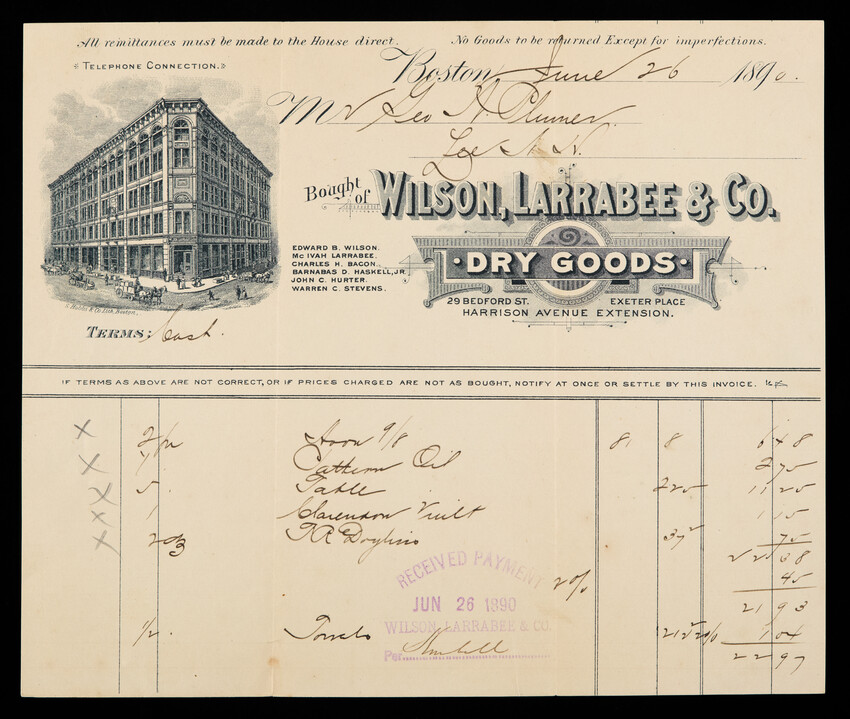 All remittances must be made to the House direct. No Goods to be returned Except for imperfections.
TELEPHONE CONNECTION.
Boston, June 26 1890.
Mr Geo H. Plumer
Lee N. H.
Bought of WILSON, LARRABEE & CO.
DRY GOODS
EDWARD B. WILSON.
Mc IVAH LARRABEE.
CHARLES H. BACON.
BARNABAS D. HASKELL, JR.
JOHN C. HURTER.
WARREN C. STEVENS.
29 BEDFORD ST. EXETER PLACE
HARRISON AVENUE EXTENSION.
TERMS: Cash.
IF TERMS AS ABOVE ARE NOT CORRECT, OR IF PRICES CHARGED ARE NOT AS BOUGHT, NOTIFY AT ONCE OR SETTLE BY THIS INVOICE.
X 9/8 81 8 6 48
X 1 Oil 2 75
X 5 Table 2 25 11 25
X 1 Clarendon Quilt 1 15
X 2 Doylies 37 75
22 38
2% 45
21 93
1/2 Towels 1 04
22 97
RECEIVED PAYMENT
JUN 26 1890
WILSON, LARRABEE & CO.
Per